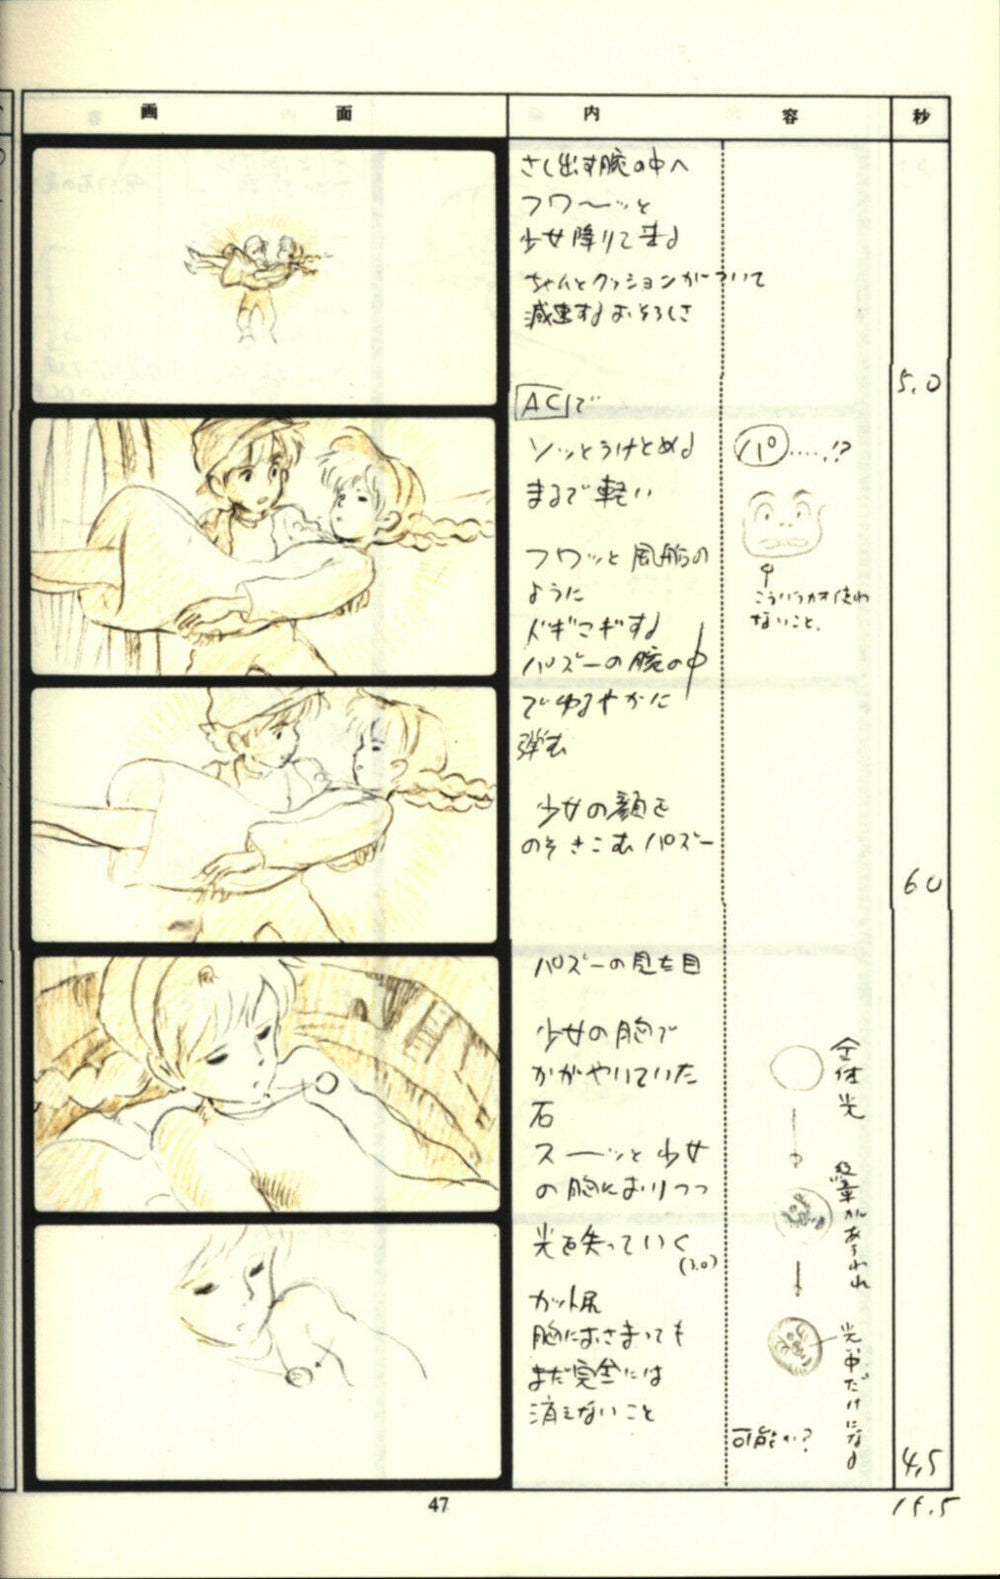 画 面 内 容 秒
さし出す腕の中へ
フワ〜ッと
少女降りて来る
ちゃんとクッションがついて
減速するおそろしさ
5.0
ACで
ソッとうけとめる
まるで軽い
フワッと風船の
ように
ドギマギする
パズーの腕の中
でゆるやかに
弾む
パ.....!?
こういうカオ使わ
ないこと.
少女の顔を
のぞきこむパズー
6.0
パズーの見た目
少女の胸で
かがやいていた
石
スーッと少女
の胸におりつつ
光を失っていく
(3.0)
カット尻
胸におさまっても
まだ完全には
消えないこと
全体光
紋章があらわれ
光、中だけになる
可能か?
4.5
15.5
47